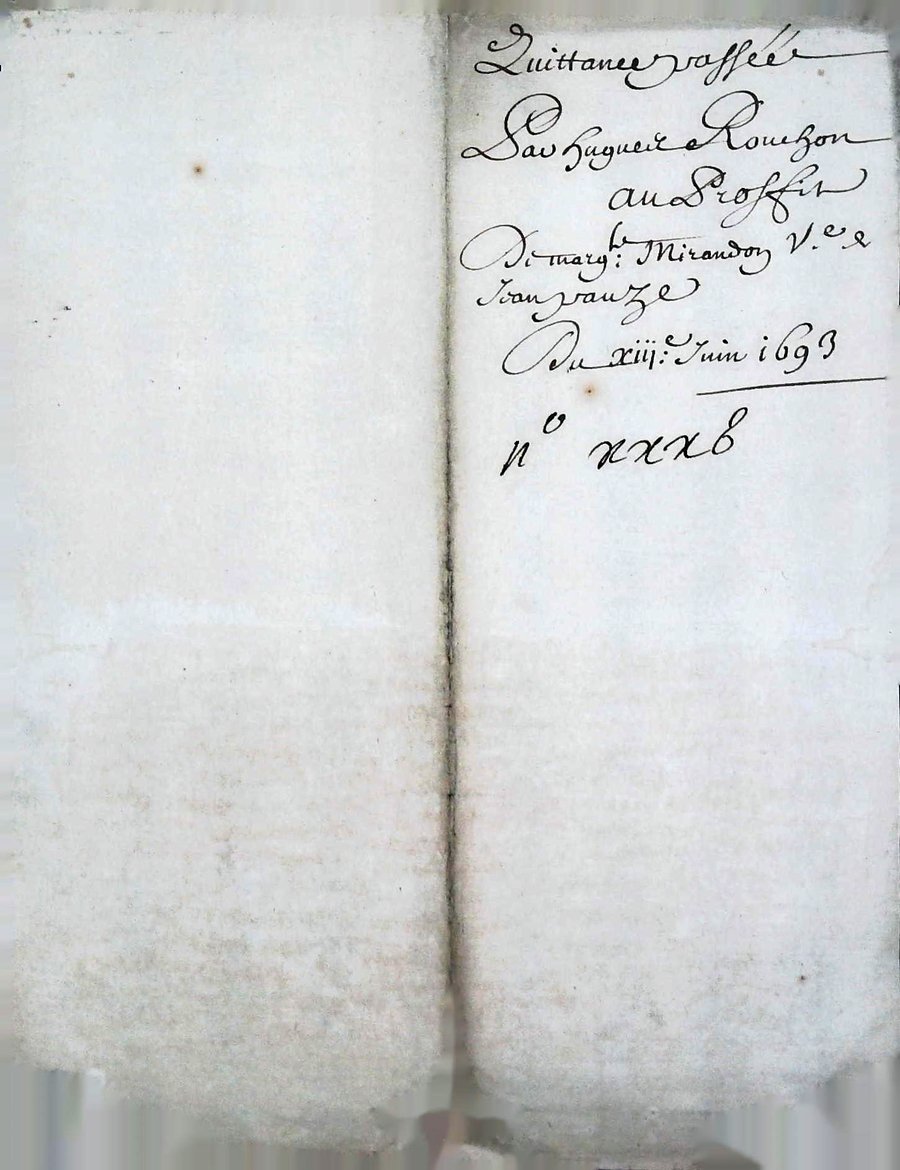 Quittance passéé
Par hugueis Rouchon
au Proffit
De marg.te Mirandon V.e e
Jean vauze
Du xiij.e Juin 1693
n.o xxx8